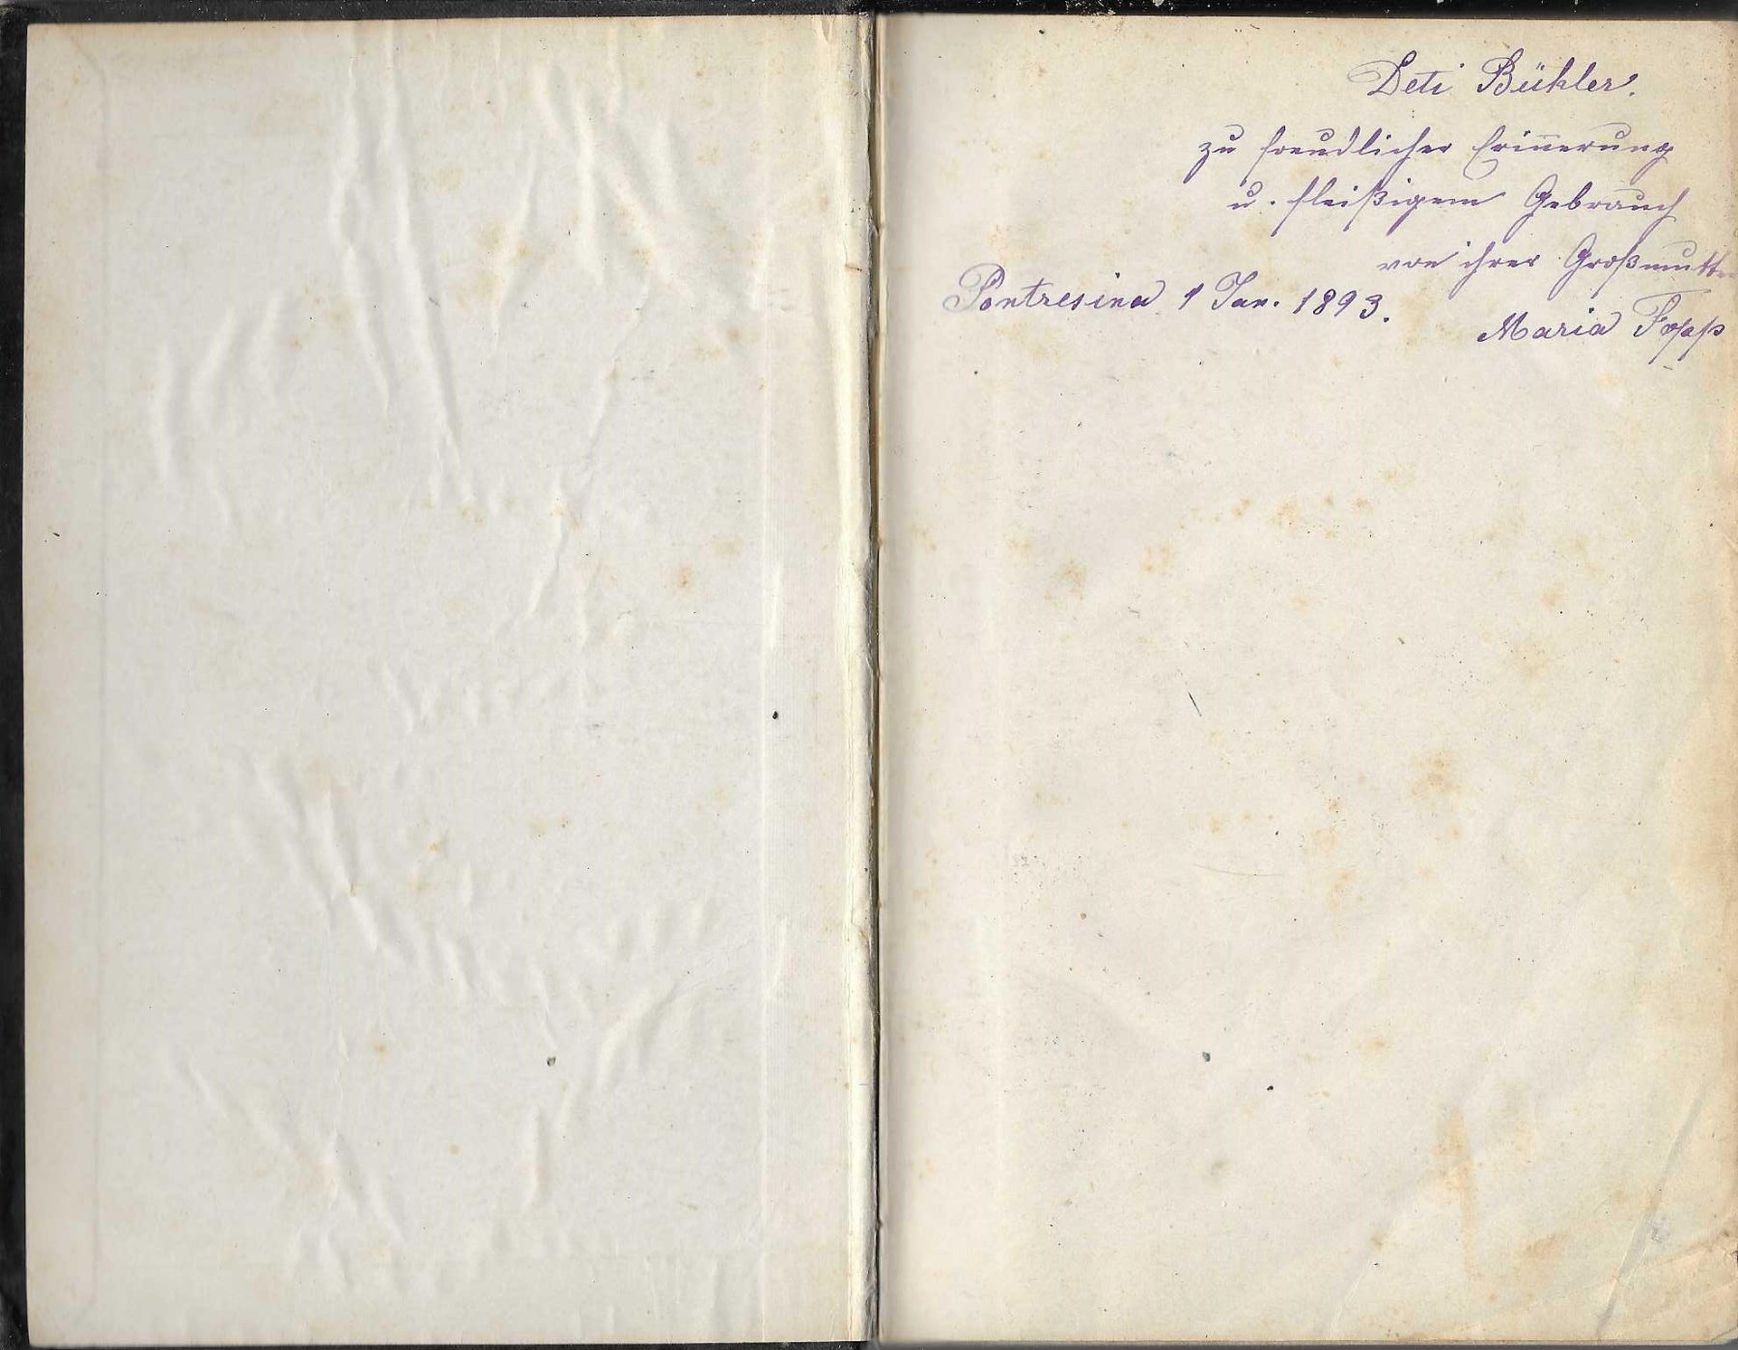 Deti Bühler.
zu freundlicher Erinerung
u. fleißigem Gebrauch
von ihrer Großmutter
Pontresina 1 Jan. 1893.
Maria Fopp